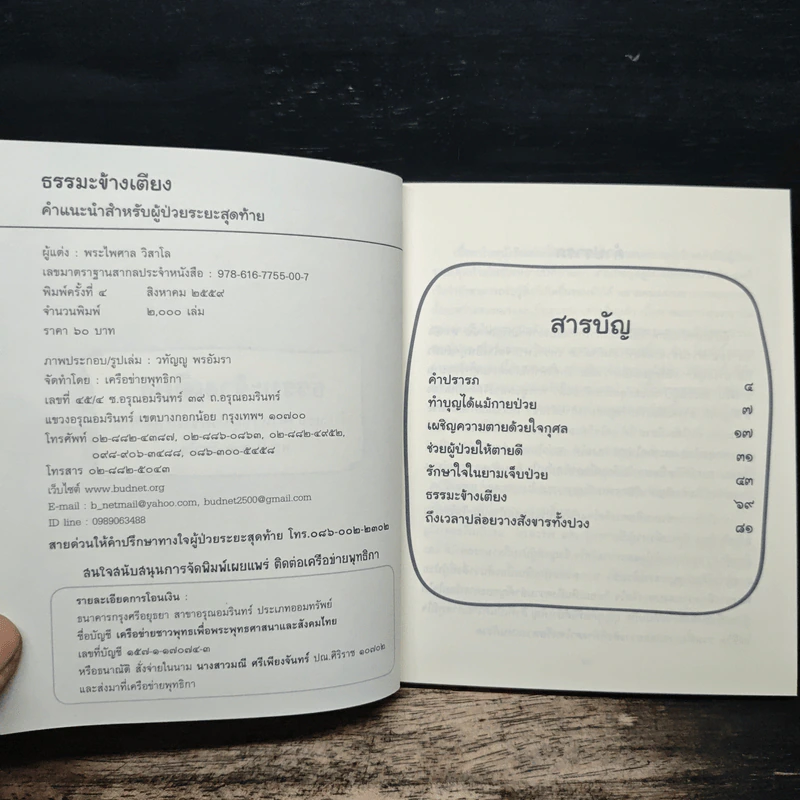 ธรรมะข้างเตียง
คำแนะนำสำหรับผู้ป่วยระยะสุดท้าย
ผู้แต่ง : พระไพศาล วิสาโล
เลขมาตราฐานสากลประจำหนังสือ : 978-616-7755-00-7
พิมพ์ครั้งที่ ๔ สิงหาคม ๒๕๕๙
จำนวนพิมพ์ ๒,๐๐๐ เล่ม
ราคา ๖๐ บาท
ภาพประกอบ/รูปเล่ม : วทัญญู พรอัมรา
จัดทำโดย : เครือข่ายพุทธิกา
เลขที่ ๔๕/๔ ซ.อรุณอมรินทร์ ๓๙ ถ.อรุณอมรินทร์
แขวงอรุณอมรินทร์ เขตบางกอกน้อย กรุงเทพฯ ๑๐๗๐๐
โทรศัพท์ ๐๒-๘๘๒-๔๓๘๗, ๐๒-๘๘๖-๐๘๖๓, ๐๒-๘๘๒-๔๙๕๒,
๐๙๘-๙๐๖-๓๔๘๘, ๐๘๖-๓๐๐-๕๔๕๘
โทรสาร ๐๒-๘๘๒-๕๐๔๓
เว็บไซต์ www.budnet.org
E-mail : b_netmail@yahoo.com, budnet2500@gmail.com
ID line : 0989063488
สายด่วนให้คำปรึกษาทางใจผู้ป่วยระยะสุดท้าย โทร.๐๘๖-๐๐๒-๒๓๐๒
สนใจสนับสนุนการจัดพิมพ์เผยแพร่ ติดต่อเครือข่ายพุทธิกา
รายละเอียดการโอนเงิน :
ธนาคารกรุงศรีอยุธยา สาขาอรุณอมรินทร์ ประเภทออมทรัพย์
ชื่อบัญชี เครือข่ายชาวพุทธเพื่อพระพุทธศาสนาและสังคมไทย
เลขที่บัญชี ๑๕๗-๑-๑๗๐๗๔-๓
หรือธนาณัติ สั่งจ่ายในนาม นางสาวมณี ศรีเพียงจันทร์ ปณ.ศิริราช ๑๐๗๐๒
และส่งมาที่เครือข่ายพุทธิกา
สารบัญ
คำปรารภ ๔
ทำบุญได้แม้กายป่วย ๗
เผชิญความตายด้วยใจกุศล ๑๗
ช่วยผู้ป่วยให้ตายดี ๓๑
รักษาใจในยามเจ็บป่วย ๔๓
ธรรมะข้างเตียง ๖๙
ถึงเวลาปล่อยวางสังขารทั้งปวง ๘๑